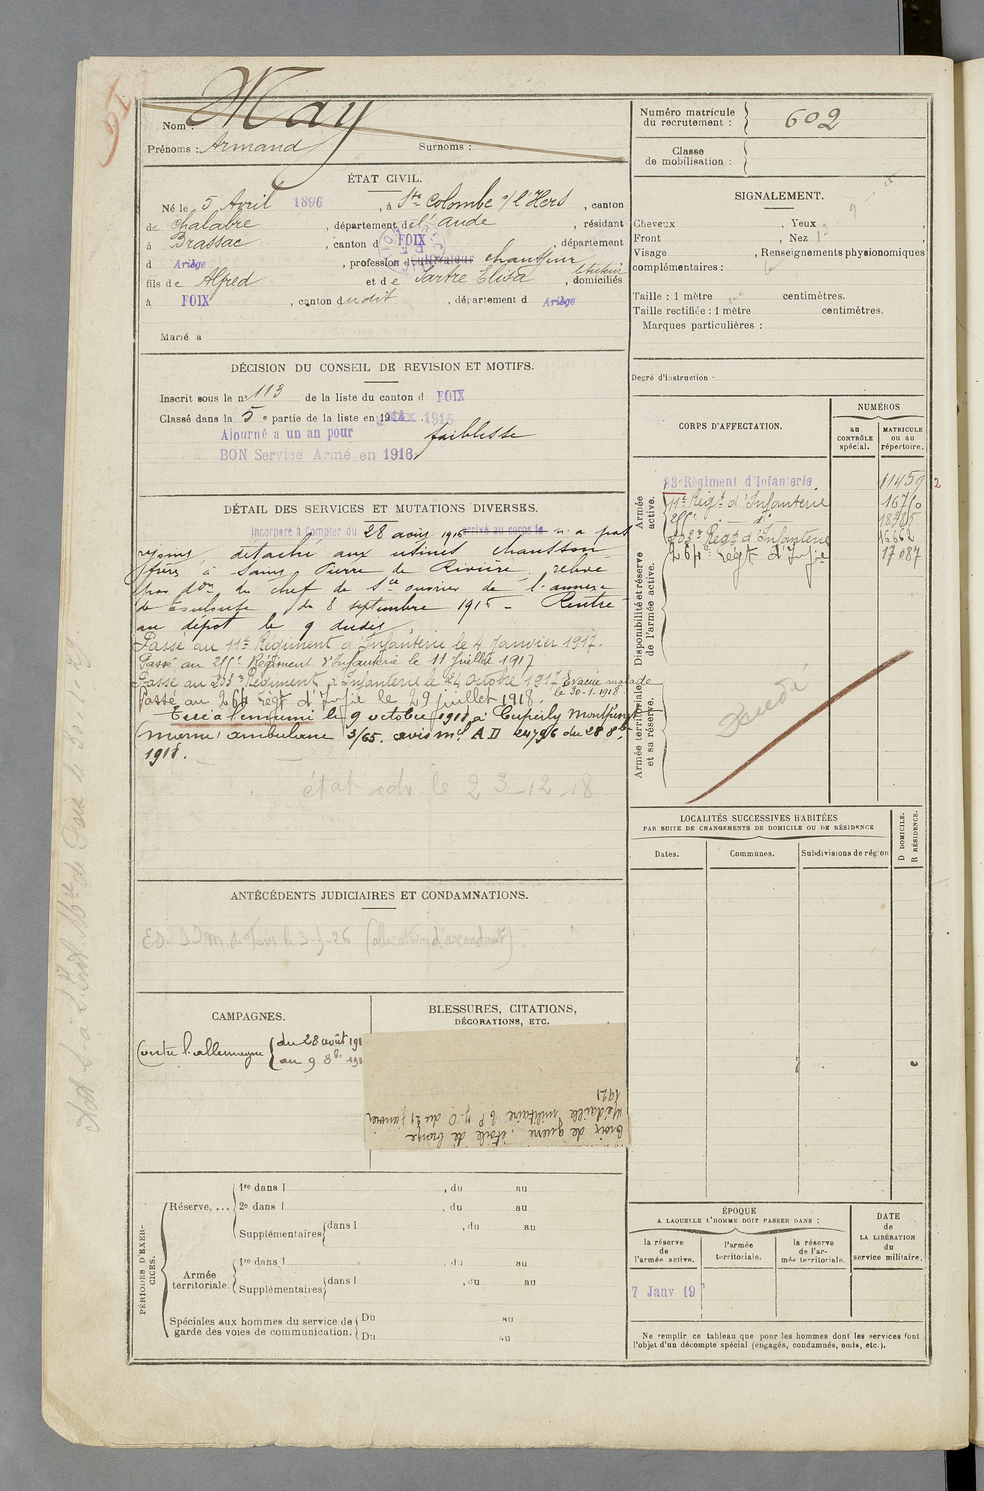 91
Nom : May
Prénoms : Armand Surnoms :
Numéro matricule du recrutement : 602
Classe de mobilisation :
ÉTAT CIVIL.
Né le 5 Avril 1896, à Ste Colombe s/ l'Hers, canton
de Chalabre, département de l'Aude, résidant
à Brassac, canton d FOIX, département
d Ariège, profession d cultivateur chauffeur
fils de Alfred et de Sartre Elisa, domiciliés
à FOIX, canton dudit, département d Ariège
Marié à
SIGNALEMENT.
Cheveux , Yeux ,
Front , Nez ,
Visage , Renseignements physionomiques
complémentaires :
Taille : 1 mètre centimètres.
Taille rectifiée : 1 mètre centimètres.
Marques particulières :
Degré d'instruction :
DÉCISION DU CONSEIL DE REVISION ET MOTIFS.
Inscrit sous le no 113 de la liste du canton d FOIX
Classé dans la 5e partie de la liste en 1915
Ajourné a un an pour faiblesse
BON Service Armé en 1916
CORPS D'AFFECTATION.
NUMÉROS
au CONTRÔLE spécial.
MATRICULE ou au répertoire.
Armée active.
83e Régiment d'Infanterie 11459
11e Régt d'Infanterie
d°
Régt d'Infanterie
264e Régt d'Infie 17087
Disponibilité et réserve de l'armée active.
Armée territoriale et sa réserve.
Décédé
DÉTAIL DES SERVICES ET MUTATIONS DIVERSES.
Incorporé à Compter du 28 août 1915 arrivé au corps le n'a pas
rejoint détaché aux usines Chausson
frères à Saint Pierre de Rivière relevé
par don du chef de Sce ouvrier de l'annexe
de Toulouse du 8 septembre 1915 - Rentré
au dépôt le 9 dudit
Passé au 11e Régiment d'Infanterie le 4 Janvier 1917.
Passé au Régiment d'Infanterie le 11 Juillet 1917
Passé au Régiment d'Infanterie le 24 octobre 1917 Evacué malade
le 30-1-1918
Passé au 264 Régt d'Infie le 29 juillet 1918.
Tué à l'ennemi le 9 octobre 1918 à Cuperly
(Marne) ambulance 3/65. avis ml AD du 28 8bre
1918.
état adr. le 23-12-18
LOCALITÉS SUCCESSIVES HABITÉES
PAR SUITE DE CHANGEMENTS DE DOMICILE OU DE RÉSIDENCE
D DOMICILE.
R RÉSIDENCE.
Dates. Communes. Subdivisions de région
ANTÉCÉDENTS JUDICIAIRES ET CONDAMNATIONS.
(allocation d'ascendant)
CAMPAGNES.
Contre l'allemagne du 28 août 191
au 9 8bre 191
BLESSURES, CITATIONS,
DÉCORATIONS, ETC.
Croix de guerre étoile de bronze
Médaille militaire J.O du 21 janvier
1921
PÉRIODES D'EXERCICES.
Réserve, ...
1re dans l , du au
2e dans l , du au
Supplémentaires dans l , du au
Armée territoriale.
1re dans l , du au
Supplémentaires dans l , du au
Spéciales aux hommes du service de garde des voies de communication.
Du au
Du au
ÉPOQUE
A LAQUELLE L'HOMME DOIT PASSER DANS :
la réserve de l'armée active.
l'armée territoriale.
la réserve de l'armée territoriale.
DATE de LA LIBÉRATION du service militaire.
7 Janv 19
Ne remplir ce tableau que pour les hommes dont les services font
l'objet d'un décompte spécial (engagés, condamnés, omis, etc.).